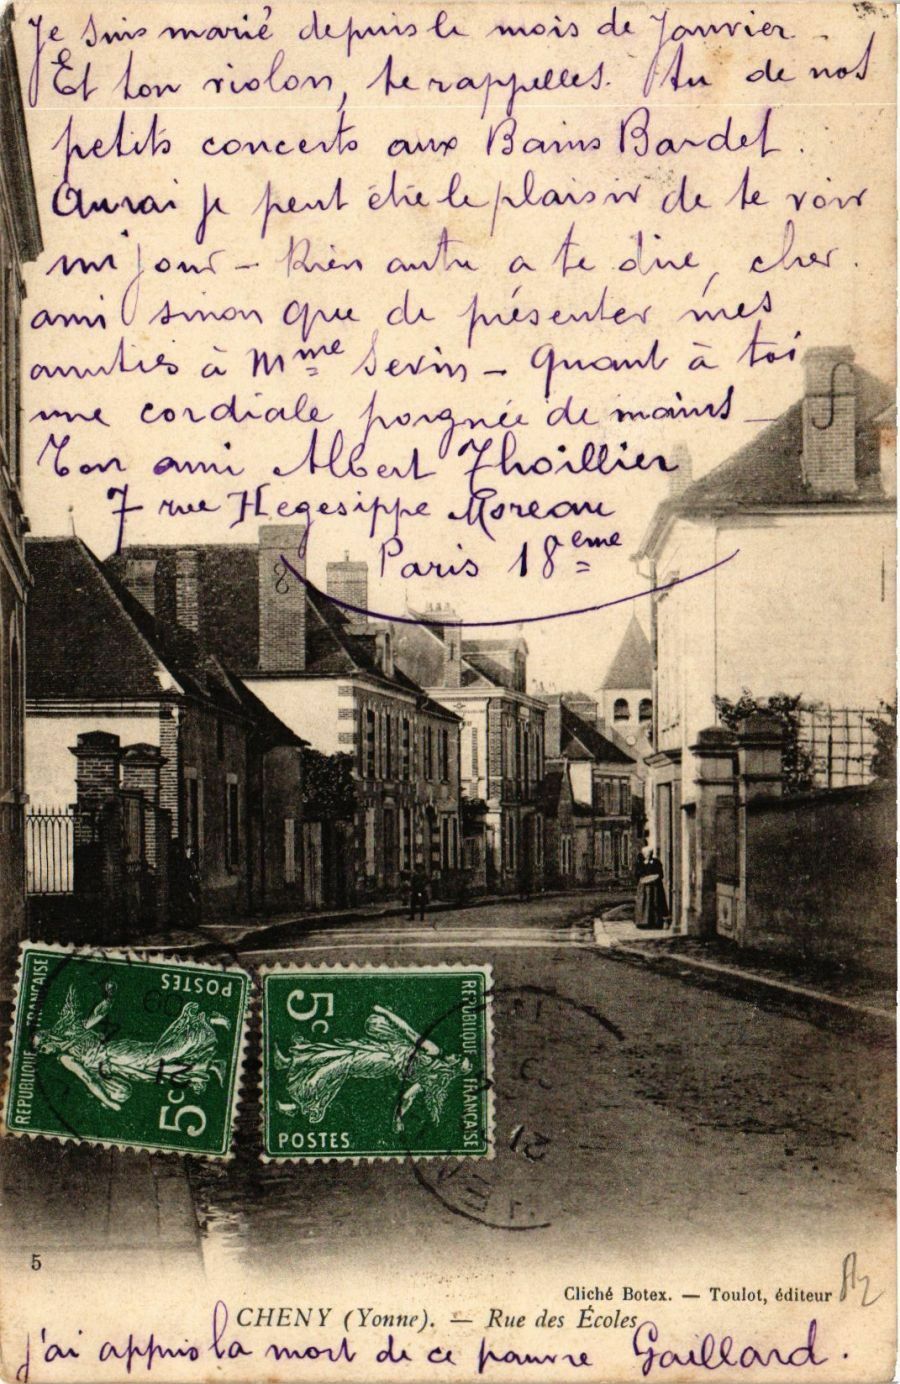 Je suis marié depuis le mois de Janvier.
Et ton violon, te rappelles-tu de nos
petits concerts aux Bains Bardet.
Aurai je peut être le plaisir de te voir
un jour - Rien autre a te dire, cher
ami sinon que de présenter mes
amitiés à Mme Sevin - Quant à toi
une cordiale poignée de mains -
Ton ami Albert Thoillier
7 rue Hegesippe Moreau
Paris 18eme
RÉPUBLIQUE FRANÇAISE
POSTES
5c
RÉPUBLIQUE FRANÇAISE
POSTES
5c
5
Cliché Botex. — Toulot, éditeur
CHENY (Yonne). — Rue des Écoles
j'ai appris la mort de ce pauvre Gaillard.